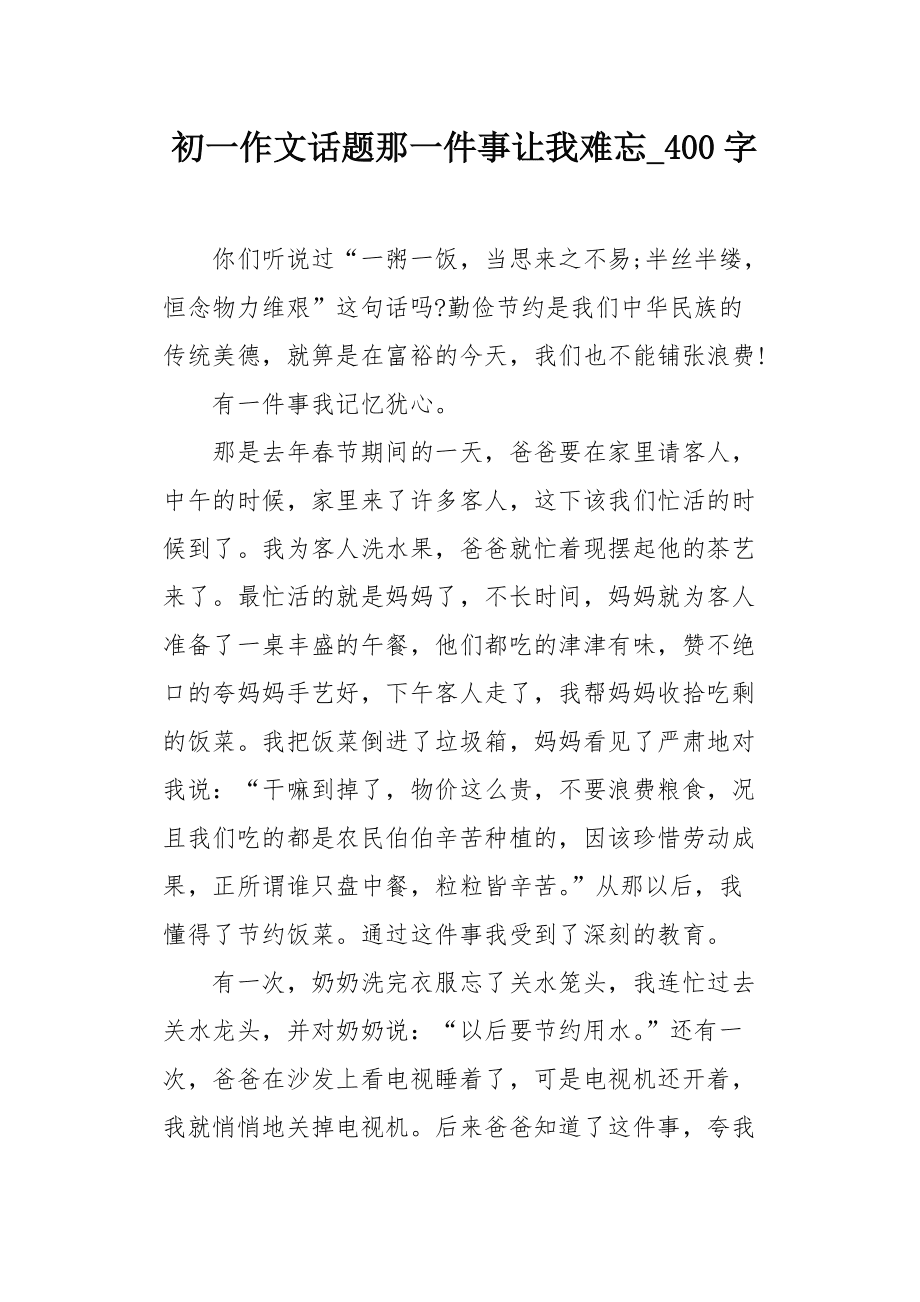 初一作文话题那一件事让我难忘_400 字
你们听说过“一粥一饭，当思来之不易;半丝半缕，
恒念物力维艰”这句话吗?勤俭节约是我们中华民族的
传统美德，就箅是在富裕的今天，我们也不能铺张浪费!
有一件事我记忆犹心。
那是去年春节期间的一天，爸爸要在家里请客人，
中午的时候，家里来了许多客人，这下该我们忙活的时
候到了。我为客人洗水果，爸爸就忙着现摆起他的茶艺
来了。最忙活的就是妈妈了，不长时间，妈妈就为客人
准备了一桌丰盛的午餐，他们都吃的津津有味，赞不绝
口的夸妈妈手艺好，下午客人走了，我帮妈妈收拾吃剩
的饭菜。我把饭菜倒进了垃圾箱，妈妈看见了严肃地对
我说：“干嘛到掉了，物价这么贵，不要浪费粮食，况
且我们吃的都是农民伯伯辛苦种植的，因该珍惜劳动成
果，正所谓谁只盘中餐，粒粒皆辛苦。”从那以后，我
懂得了节约饭菜。通过这件事我受到了深刻的教育。
有一次，奶奶洗完衣服忘了关水笼头，我连忙过去
关水龙头，并对奶奶说：“以后要节约用水。”还有一
次，爸爸在沙发上看电视睡着了，可是电视机还开着，
我就悄悄地关掉电视机。后来爸爸知道了这件事，夸我